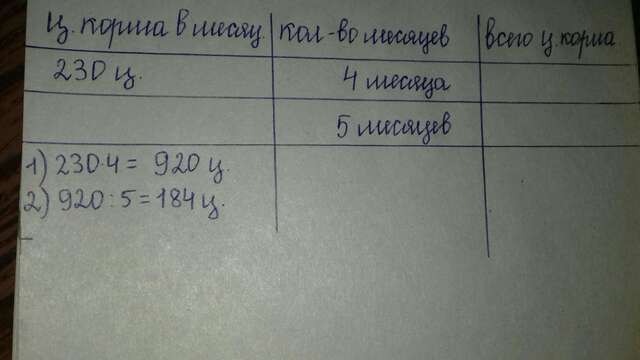 Ц. корма в месяц кол-во месяцев всего ц. корма
230 ц. 4 месяца
5 месяцев
1) 230·4 = 920 ц.
2) 920:5 = 184 ц.